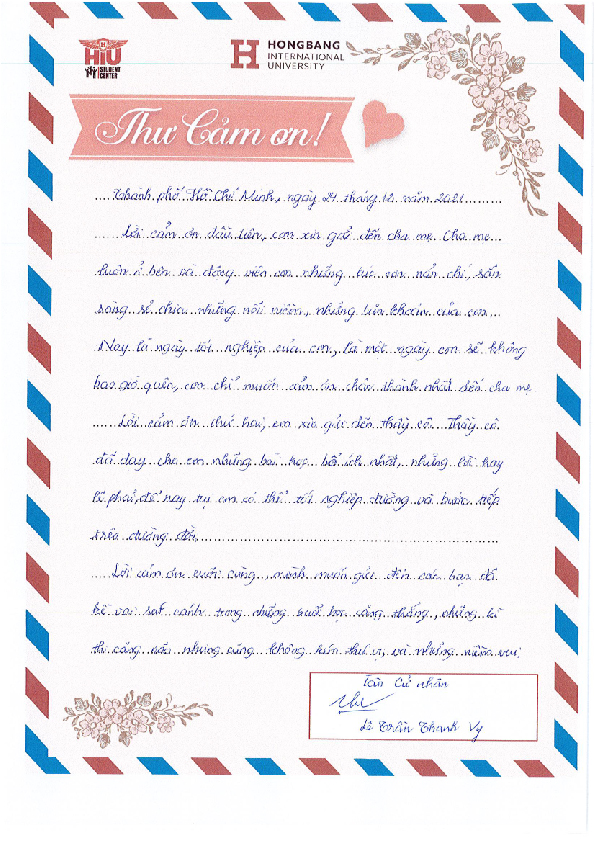 HIU
STUDENT
CENTER
HONGBANG
INTERNATIONAL
UNIVERSITY
Thư Cảm ơn!
Thành phố Hồ Chí Minh, ngày 24 tháng 12 năm 2021
Lời cảm ơn đầu tiên, con xin gửi đến cha mẹ. Cha mẹ
luôn ở bên và động viên con những lúc con nản chí, sẵn
sàng sẻ chia những nỗi niềm, những của con
Nay là ngày tốt nghiệp của con, là một ngày con sẽ không
bao giờ quên, con chỉ muốn cảm ơn chân thành nhất đến cha mẹ
Lời cảm ơn thứ hai, con xin gửi đến thầy cô. Thầy cô
đã dạy cho con những bài học bổ ích nhất, những lời hay
lẽ phải, để nay em có thể tốt nghiệp đường và bước tiếp
trên đường đời
Lời cảm ơn cuối cùng mình muốn gửi đến các bạn đã
kề vai sát cánh trong những buổi học căng thẳng, những kì
thi cũng không kém thú vị, và những niềm vui
Tân Cử nhân
Lê Trần Thanh Vy